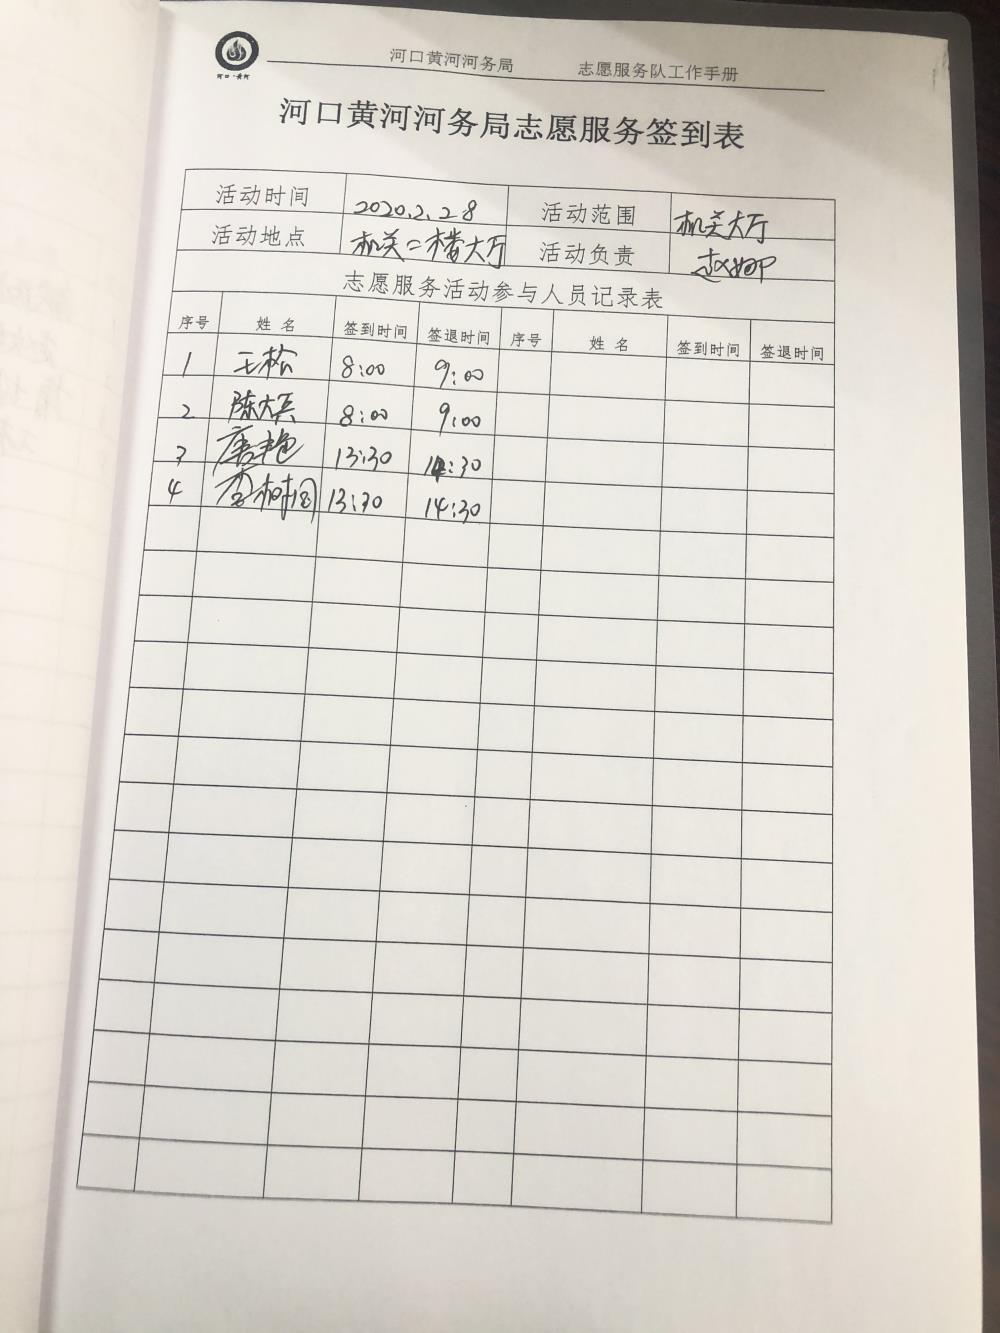 河口·黄河
河口黄河河务局 志愿服务队工作手册
河口黄河河务局志愿服务签到表
活动时间 2020.2.28 活动范围 机关大厅
活动地点 机关二楼大厅 活动负责 赵娜
志愿服务活动参与人员记录表
序号 姓名 签到时间 签退时间 序号 姓名 签到时间 签退时间
1 王松 8:00 9:00
2 陈大兵 8:00 9:00
3 13:30 14:30
4 李树 13:30 14:30